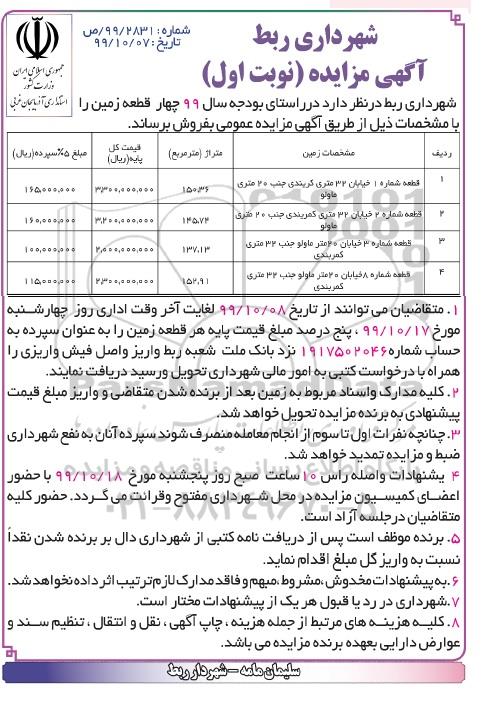 شهرداری ربط
آگهی مزایده (نوبت اول)
شماره: ۹۹/۲۸۳۱/ص
تاریخ: ۹۹/۱۰/۰۷
جمهوری اسلامی ایران
وزارت کشور
استانداری آذربایجان غربی
شهرداری ربط درنظر دارد درراستای بودجه سال ۹۹ چهار قطعه زمین را
با مشخصات ذیل از طریق آگهی مزایده عمومی بفروش برساند.
ردیف مشخصات زمین متراژ (مترمربع) قیمت کل پایه(ریال) مبلغ ۵٪سپرده(ریال)
۱ قطعه شماره ۱ خیابان ۳۲ متری کربندی جنب ۲۰ متری ماولو ۱۵۰.۳۶ ۳,۳۰۰,۰۰۰,۰۰۰ ۱۶۵,۰۰۰,۰۰۰
۲ قطعه شماره ۲ خیابان ۳۲ متری کمربندی جنب ۲۰ متری ماولو ۱۴۵.۷۲ ۳,۲۰۰,۰۰۰,۰۰۰ ۱۶۰,۰۰۰,۰۰۰
۳ قطعه شماره ۳ خیابان ۲۰متر ماولو جنب ۳۲ متری کمربندی ۱۳۷.۱۳ ۲,۰۰۰,۰۰۰,۰۰۰ ۱۰۰,۰۰۰,۰۰۰
۴ قطعه شماره ۸خیابان ۲۰متر ماولو جنب ۳۲ متری کمربندی ۱۵۲.۹۱ ۲,۳۰۰,۰۰۰,۰۰۰ ۱۱۵,۰۰۰,۰۰۰
۱. متقاضیان می توانند از تاریخ ۹۹/۱۰/۰۸ لغایت آخر وقت اداری روز چهارشنبه
مورخ ۹۹/۱۰/۱۷ ، پنج درصد مبلغ قیمت پایه هر قطعه زمین را به عنوان سپرده به
حساب شماره ۱۹۱۷۵۰۲۰۴۶ نزد بانک ملت شعبه ربط واریز واصل فیش واریزی را
همراه با درخواست کتبی به امور مالی شهرداری تحویل ورسید دریافت نمایند.
۲. کلیه مدارک واسناد مربوط به زمین بعد از برنده شدن متقاضی و واریز مبلغ قیمت
پیشنهادی به برنده مزایده تحویل خواهد شد.
۳. چنانچه نفرات اول تا سوم از انجام معامله منصرف شوند سپرده آنان به نفع شهرداری
ضبط و مزایده تمدید خواهد شد.
۴ یشنهادات واصله راس ۱۰ ساعت صبح روز پنجشنبه مورخ ۹۹/۱۰/۱۸ با حضور
اعضای کمیسیون مزایده در محل شهرداری مفتوح وقرائت می گردد. حضور کلیه
متقاضیان درجلسه آزاد است.
۵. برنده موظف است پس از دریافت نامه کتبی از شهرداری دال بر برنده شدن نقداً
نسبت به واریز کل مبلغ اقدام نماید.
۶. به پیشنهادات مخدوش،مشروط،مبهم و فاقد مدارک لازم ترتیب اثر داده نخواهد شد.
۷. شهرداری در رد یا قبول هر یک از پیشنهادات مختار است.
۸. کلیه هزینه های مرتبط از جمله هزینه ، چاپ آگهی ، نقل و انتقال ، تنظیم سند و
عوارض دارایی بعهده برنده مزایده می باشد.
سلیمان مامه – شهردار ربط